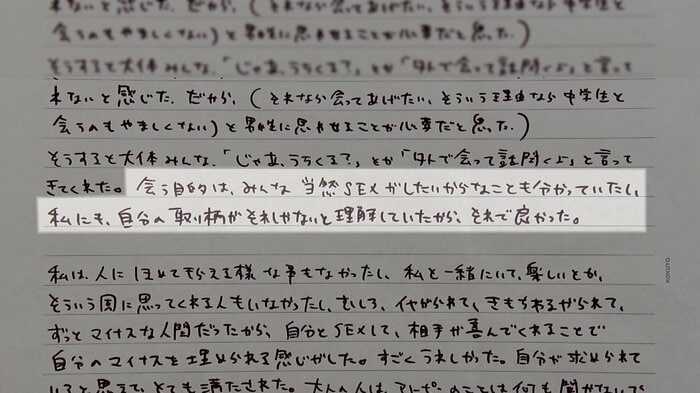 れないと感じた。だから、(それなら会ってあげたい、そういう理由なら中学生と
会うのもやましくない)と男性に思わせることが必要だと思った。)
そうすると大体みんな、「じゃあ、うちくる?」とか「外で会って話聞くよ」と言って
れないと感じた。だから、(それなら会ってあげたい、そういう理由なら中学生と
会うのもやましくない)と男性に思わせることが必要だと思った。)
そうすると大体みんな、「じゃあ、うちくる?」とか「外で会って話聞くよ」と言って
きてくれた。会う目的は、みんな当然SEXがしたいからなことも分かっていたし、
私にも、自分の取り柄がそれしかないと理解していたから、それで良かった。
私は、人にほめてもらえる様な事もなかったし、私と一緒にいて、楽しいとか、
そういう風に思ってくれる人もいなかったし、むしろ、イヤがられて、きもちわるがられて、
ずっとマイナスな人間だったから、自分とSEXして、相手が喜んでくれることで
自分のマイナスを埋められる感じがした。すごくうれしかった。自分が求められて
いると思えて、とても満たされた。大人の人は、アトピーのことは何も聞かないで
KOKUYO